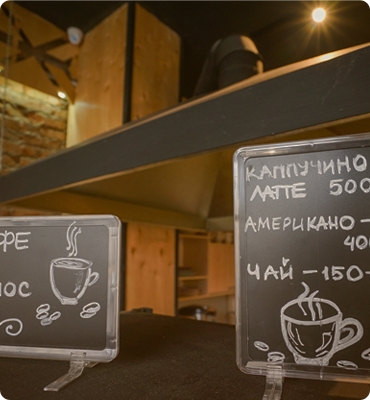 ФЕ
ЛОС
КАППУЧИНО
ЛАТТЕ 500
АМЕРИКАНО -
400
ЧАЙ - 150 -